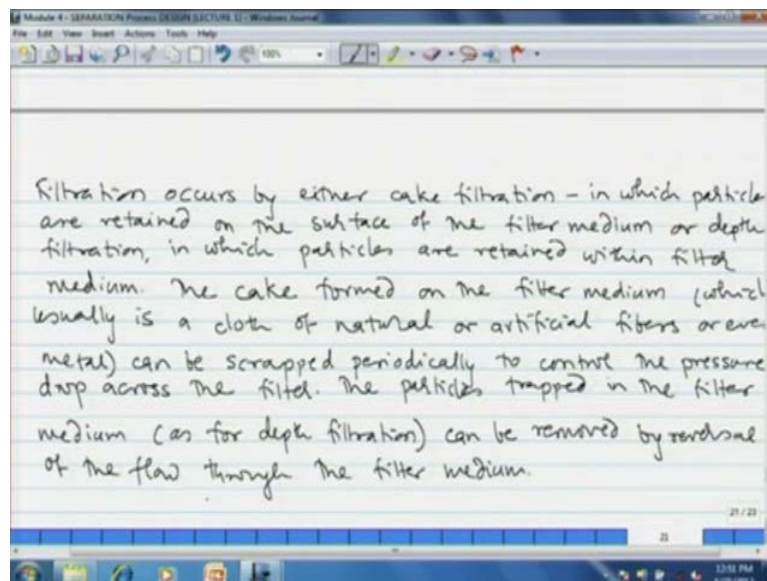 Module 4 - SEPARATION Process DESIGN (LECTURE 1) - Windows Journal
File Edit View Insert Actions Tools Help
100%
Filtration occurs by either cake filtration – in which particle
are retained on the surface of the filter medium or depth
filtration, in which particles are retained within filter
medium. The cake formed on the filter medium (which
usually is a cloth of natural or artificial fibers or even
metal) can be scrapped periodically to control the pressure
drop across the filter. The particles trapped in the filter
medium (as for depth filtration) can be removed by reversal
of the flow through the filter medium.
21 / 23
21
12:51 PM